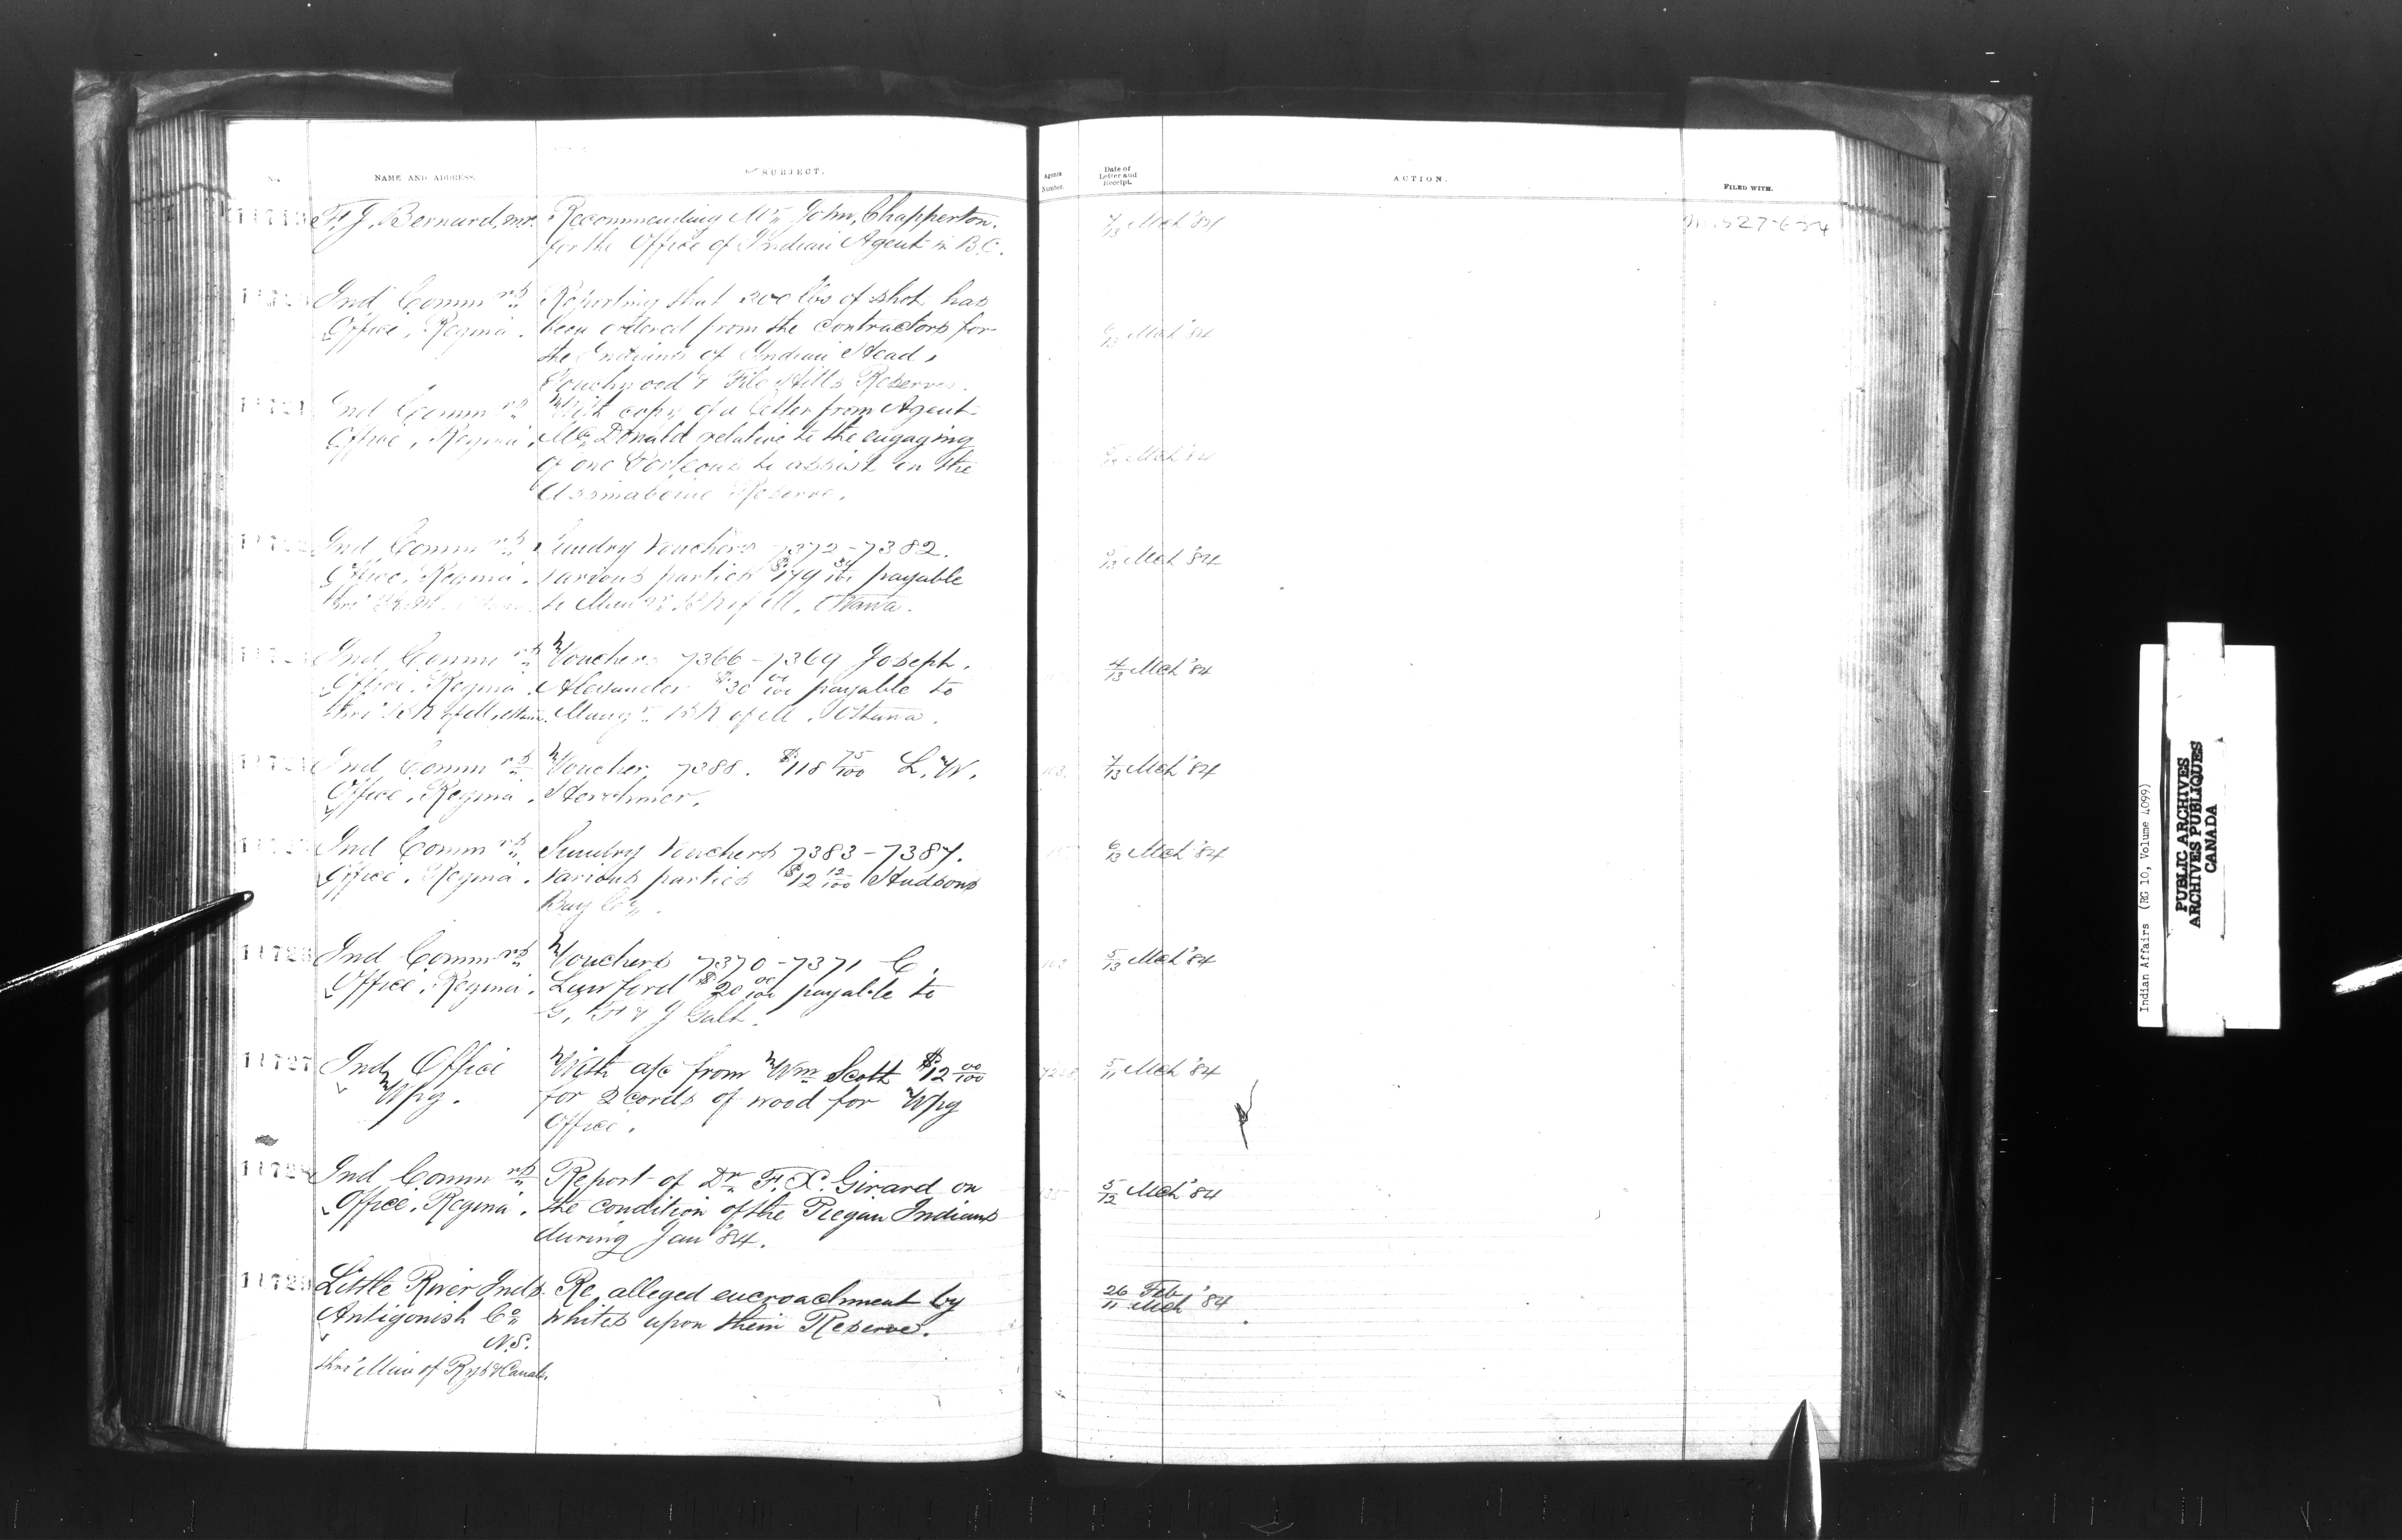 NAME AND ADDRESS.
SUBJECT.
Agents Number.
Date of Letter and Receipt.
ACTION.
FILED WITH.
F. J. Bernard, M.P. Recommending Mr. John Chapperton
for the Office of Indian Agent in B.C.
7/13 Mch '84
Ind Commrs Reporting that 200 lbs of shot has
Office, Regina. been ordered from the contractors for
the Indians of Indian Head,
Touchwood & File Hills Reserves.
6/13 Mch '84
Ind Commrs With copy of a letter from Agent
Office, Regina. McDonald relative to the engaging
of one to assist on the
Assinaboine Reserve.
Mch '84
Ind Commrs Sundry Vouchers 7372-7382.
Office, Regina. various parties payable
to Manr Bk of M, Ottawa.
Mch '84
Ind Commrs Vouchers 7366-7369 Joseph
Office, Regina. Alexander $30 00/100 payable to
thro' Bk of M, Ottawa. Mangr Bk of M. Ottawa.
4/13 Mch '84
Ind Commrs Voucher 7388. $118 75/100 L. W.
Office, Regina. Herchmer.
7/13 Mch '84
Ind Commrs Sundry Vouchers 7383-7387.
Office, Regina. various parties $12 12/100 Hudsons
Bay Co.
6/13 Mch '84
11726 Ind Commrs Vouchers 7370-7371 C.
Office, Regina. Lunford $20 00/100 payable to
G, F & J Galt.
5/13 Mch '84
11727 Ind Office With a/c from Wm Scott $12 00/100
Wpg. for 2 cords of wood for Wpg
Office.
5/11 Mch '84
11728 Ind Commrs Report of Dr F. X. Girard on
Office, Regina. the condition of the Piegan Indians
during Jan '84.
5/12 Mch '84
11729 Little River Inds Re alleged encroachment by
Antigonish Co whites upon their Reserve.
N.S.
thro' Min of Rys & Canals.
26 Feb / 11 Mch '84
Indian Affairs (RG 10, Volume 4099)
PUBLIC ARCHIVES
ARCHIVES PUBLIQUES
CANADA